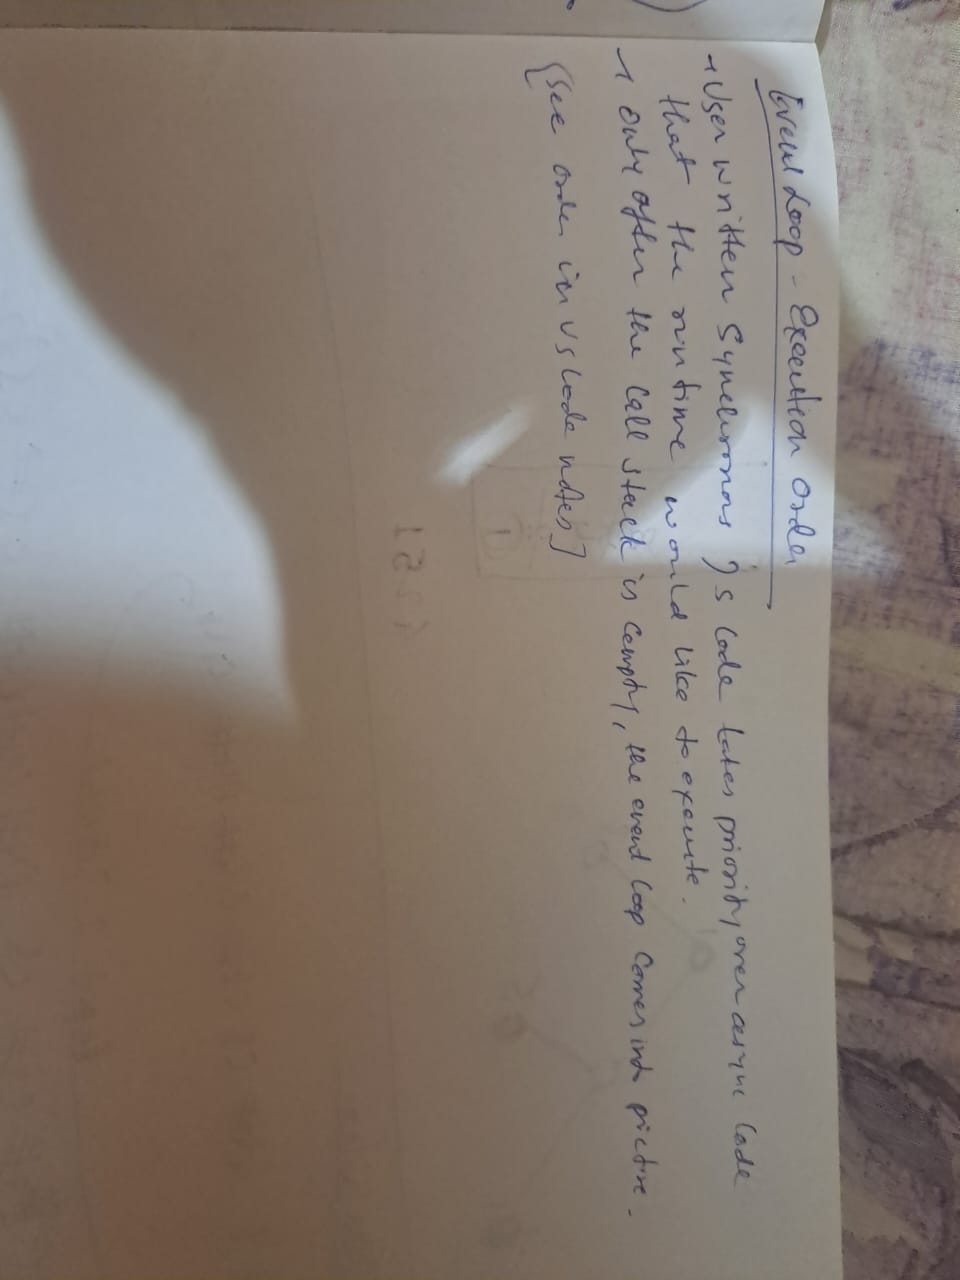 Event Loop - Execution Order
→ User written Synchronous JS Code takes priority over async Code
that the runtime would like to execute.
→ only after the call stack is empty, the event loop comes into picture.
[See order in VS Code notes]